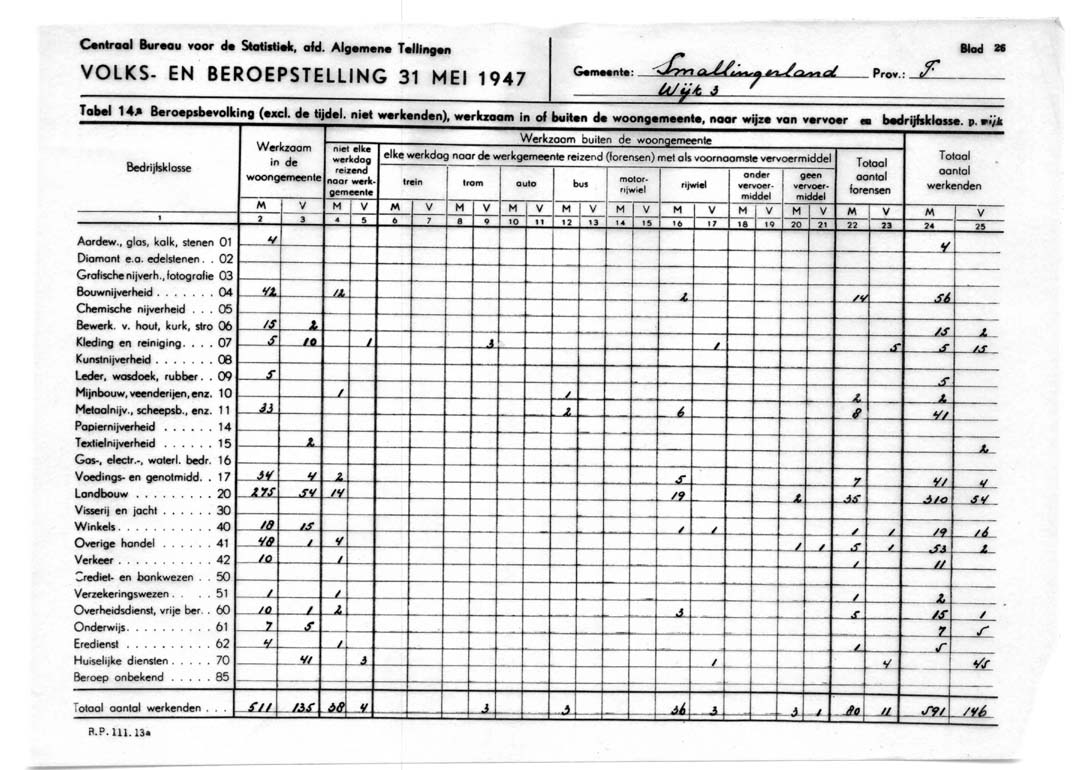 Centraal Bureau voor de Statistiek, afd. Algemene Tellingen
VOLKS- EN BEROEPSTELLING 31 MEI 1947
Gemeente: Smallingerland Prov.: F.
Wijk 3
Blad 26
Tabel 14.a Beroepsbevolking (excl. de tijdel. niet werkenden), werkzaam in of buiten de woongemeente, naar wijze van vervoer en bedrijfsklasse. p. wijk
Bedrijfsklasse
Werkzaam in de woongemeente
Werkzaam buiten de woongemeente
niet elke werkdag reizend naar werk-gemeente
elke werkdag naar de werkgemeente reizend (forensen) met als voornaamste vervoermiddel
trein tram auto bus motor-rijwiel rijwiel ander vervoer-middel geen vervoer-middel
Totaal aantal forensen
Totaal aantal werkenden
M V M V M V M V M V M V M V M V M V M V M V M V
1 2 3 4 5 6 7 8 9 10 11 12 13 14 15 16 17 18 19 20 21 22 23 24 25
Aardew., glas, kalk, stenen 01 4 4
Diamant e.a. edelstenen . . 02
Grafische nijverh., fotografie 03
Bouwnijverheid . . . . . . . 04 42 12 2 14 56
Chemische nijverheid . . . 05
Bewerk. v. hout, kurk, stro 06 15 2 15 2
Kleding en reiniging. . . . 07 5 10 1 3 1 5 5 15
Kunstnijverheid . . . . . . 08
Leder, wasdoek, rubber. . 09 5 5
Mijnbouw, veenderijen, enz. 10 1 1 2 2
Metaalnijv., scheepsb., enz. 11 33 2 6 8 41
Papiernijverheid . . . . . . 14
Textielnijverheid . . . . . . 15 2 2
Gas-, electr.-, waterl. bedr. 16
Voedings- en genotmidd. . 17 34 4 2 5 7 41 4
Landbouw . . . . . . . . . 20 275 54 14 19 2 35 310 54
Visserij en jacht . . . . . . 30
Winkels. . . . . . . . . . . 40 18 15 1 1 1 1 19 16
Overige handel . . . . . . 41 48 1 4 1 1 5 1 53 2
Verkeer . . . . . . . . . . 42 10 1 1 11
Crediet- en bankwezen . . 50
Verzekeringswezen . . . . 51 1 1 1 2
Overheidsdienst, vrije ber. . 60 10 1 2 3 5 15 1
Onderwijs. . . . . . . . . . 61 7 5 7 5
Eredienst . . . . . . . . . . 62 4 1 1 5
Huiselijke diensten . . . . . 70 41 3 1 4 45
Beroep onbekend . . . . . 85
Totaal aantal werkenden . . . 511 135 38 4 3 3 36 3 3 1 80 11 591 146
R.P. 111. 13a